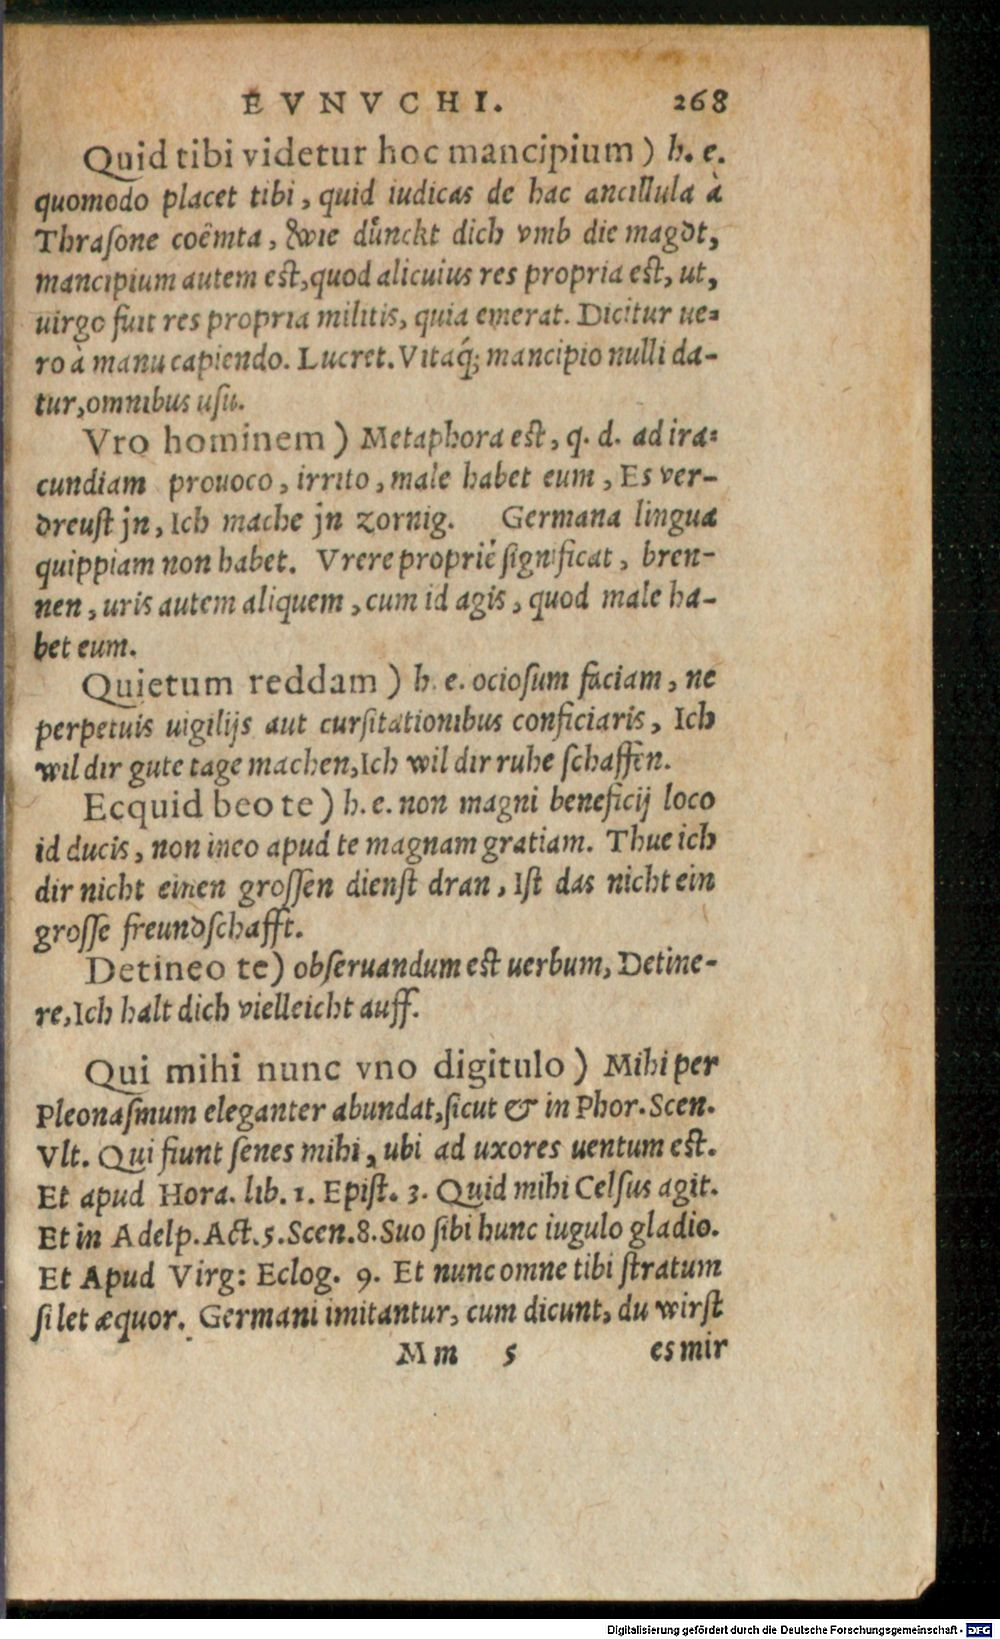 EVNVCHI. 268
Quid tibi videtur hoc mancipium) h. e.
quomodo placet tibi, quid iudicas de hac ancillula à
Thraſone coëmta, wie dünckt dich vmb die magdt,
mancipium autem est, quod alicuius res propria est, ut,
uirgo fuit res propria militis, quia emerat. Dicitur ue=
ro à manu capiendo. Lucret. Vitaq́; mancipio nulli da-
tur, omnibus uſu.
Vro hominem) Metaphora est, q. d. ad ira=
cundiam prouoco, irrito, male habet eum, Es ver-
dreuſt jn, Ich mache jn zornig. Germana lingua
quippiam non habet. Vrere propriè ſignificat, bren-
nen, uris autem aliquem, cum id agis, quod male ha-
bet eum.
Quietum reddam) h. e. ocioſum faciam, ne
perpetuis uigilijs aut curſitationibus conficiaris, Ich
wil dir gute tage machen, Ich wil dir ruhe ſchaffen.
Ecquid beo te) h. e. non magni beneficij loco
id ducis, non ineo apud te magnam gratiam. Thue ich
dir nicht einen groſſen dienſt dran, Iſt das nicht ein
groſſe freundſchafft.
Detineo te) obſeruandum est uerbum, Detine-
re, Ich halt dich vielleicht auff.
Qui mihi nunc vno digitulo) Mihi per
Pleonaſmum eleganter abundat, ſicut & in Phor. Scen.
Vlt. Qui fiunt ſenes mihi, ubi ad uxores uentum est.
Et apud Hora. lib. 1. Epiſt. 3. Quid mihi Celſus agit.
Et in Adelp. Act. 5. Scen. 8. Suo ſibi hunc iugulo gladio.
Et Apud Virg: Eclog. 9. Et nunc omne tibi ſtratum
ſilet æquor. Germani imitantur, cum dicunt, du wirſt
Mm 5 es mir
Digitalisierung gefördert durch die Deutsche Forschungsgemeinschaft - DFG